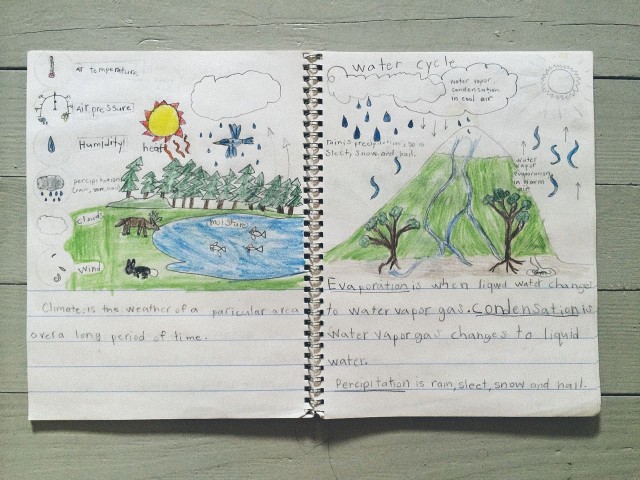 Air temperature
Air pressure!
Humidity!
heat
percipitation
(rain, snow, hail)
clouds
moisture
wind
Climate: is the weather of a paricular area
over a long period of time.
water cycle
water vapor
condensation
in cool air
rain is precipitation, so is
Sleet, snow, and hail.
water
vapor
evaporation
in warm
air
Evaporation is when liquid water changes
to water vapor gas. Condensation is
Water vapor gas changes to liquid
water.
Percipitation is rain, sleet, snow and hail.